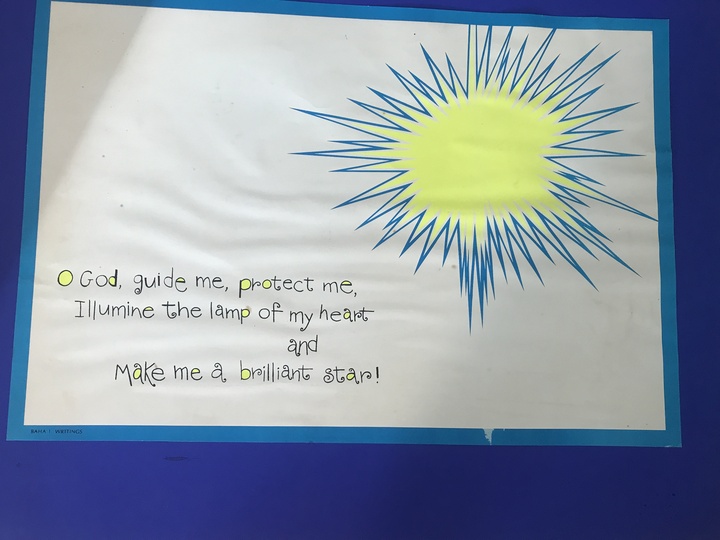 O God, guide me, protect me,
Illumine the lamp of my heart
and
Make me a brilliant star!
BAHA'I WRITINGS